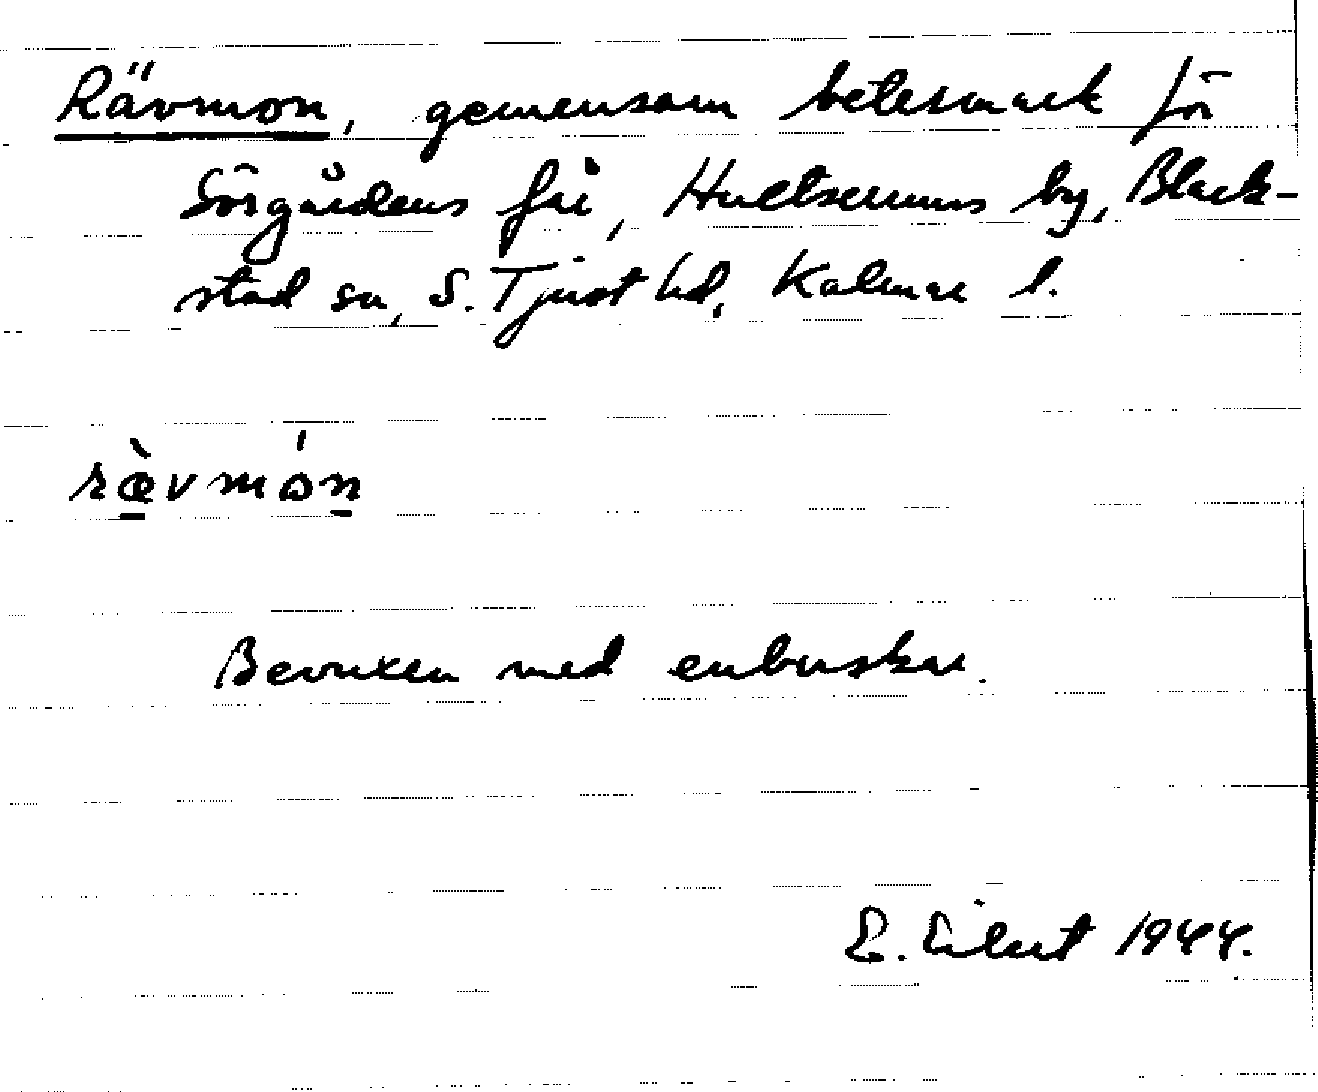 Rävmon, gemensam betesmark för
Sörgårdens får, Hultserums by, Black-
stad sn, S. Tjust hd, Kalmar l.
rævmȯn
Bevuxen med enbuskar.
E. Eilert 1944.